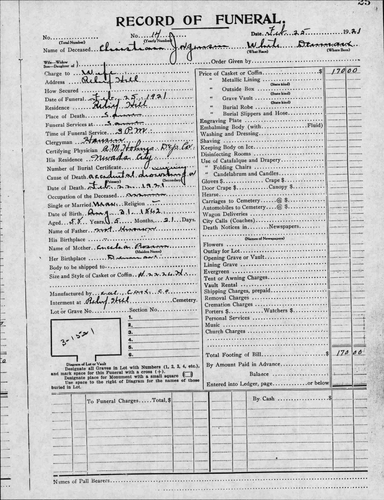 25
RECORD OF FUNERAL.
No. (Total Number) No. 14 (Yearly Number) Date Feb 25 1921
Name of Deceased Christian Jorgensen White (What Race) Denmark (Where Born)
Wife—Widow
Son—Daughter of
Charge to Wife Order Given by
Address Relief Hill
How Secured
Date of Funeral Feb 25, 1921
Residence Relief Hill
Place of Death Same
Funeral Services at Same
Time of Funeral Service 2 P.M.
Clergyman
Certifying Physician
His Residence Nevada City
Number of Burial Certificate
Cause of Death accidental
Date of Death Feb 22, 1921
Occupation of the Deceased
Single or Married Religion
Date of Birth Aug 31, 1862
Aged 58 Years 5 Months 21 Days
Name of Father
His Birthplace
Name of Mother (Maiden Name)
Her Birthplace Denmark
Body to be shipped to
Size and Style of Casket or Coffin
Manufactured by Cal. Cask. Co
Interment at Relief Hill Cemetery.
Lot or Grave No. Section No.
3-1521
1.
2.
3.
4.
5.
6.
Diagram of Lot or Vault
Designate all Graves in Lot with Numbers (1, 2, 3, 4, etc.), and mark space for this Funeral with a cross (+).
Designate place for Monument with a small square □
Use space to the right of Diagram for the names of those buried in Lot.
Price of Casket or Coffin $ 170 00
" Metallic Lining
" Outside Box
" Grave Vault
" Burial Robe
" Burial Slippers and Hose
Engraving Plate
Embalming Body (with Fluid)
Washing and Dressing
Shaving
Keeping Body on Ice
Disinfecting Rooms
Use of Catafalque and Drapery
" Folding Chairs
" Candelabrum and Candles
Gloves $ Crape $
Door Crape $ Candy $
Hearse
Carriages to Cemetery @ $
Automobiles to Cemetery @ $
Wagon Deliveries
City Calls (Coaches)
Death Notices in Newspapers
(Names of Newspapers)
Flowers
Outlay for Lot
Opening Grave or Vault
Lining Grave
Evergreen
Tent or Awning Charges
Vault Rental
Shipping Charges, prepaid
Removal Charges
Cremation Charges
Porters $ Watchers $
Personal Services
Music
Church Charges
Total Footing of Bill $ 170 00
By Amount Paid in Advance
Balance
Entered into Ledger, page or below
To Funeral Charges, Total $ By Cash $
Names of Pall Bearers